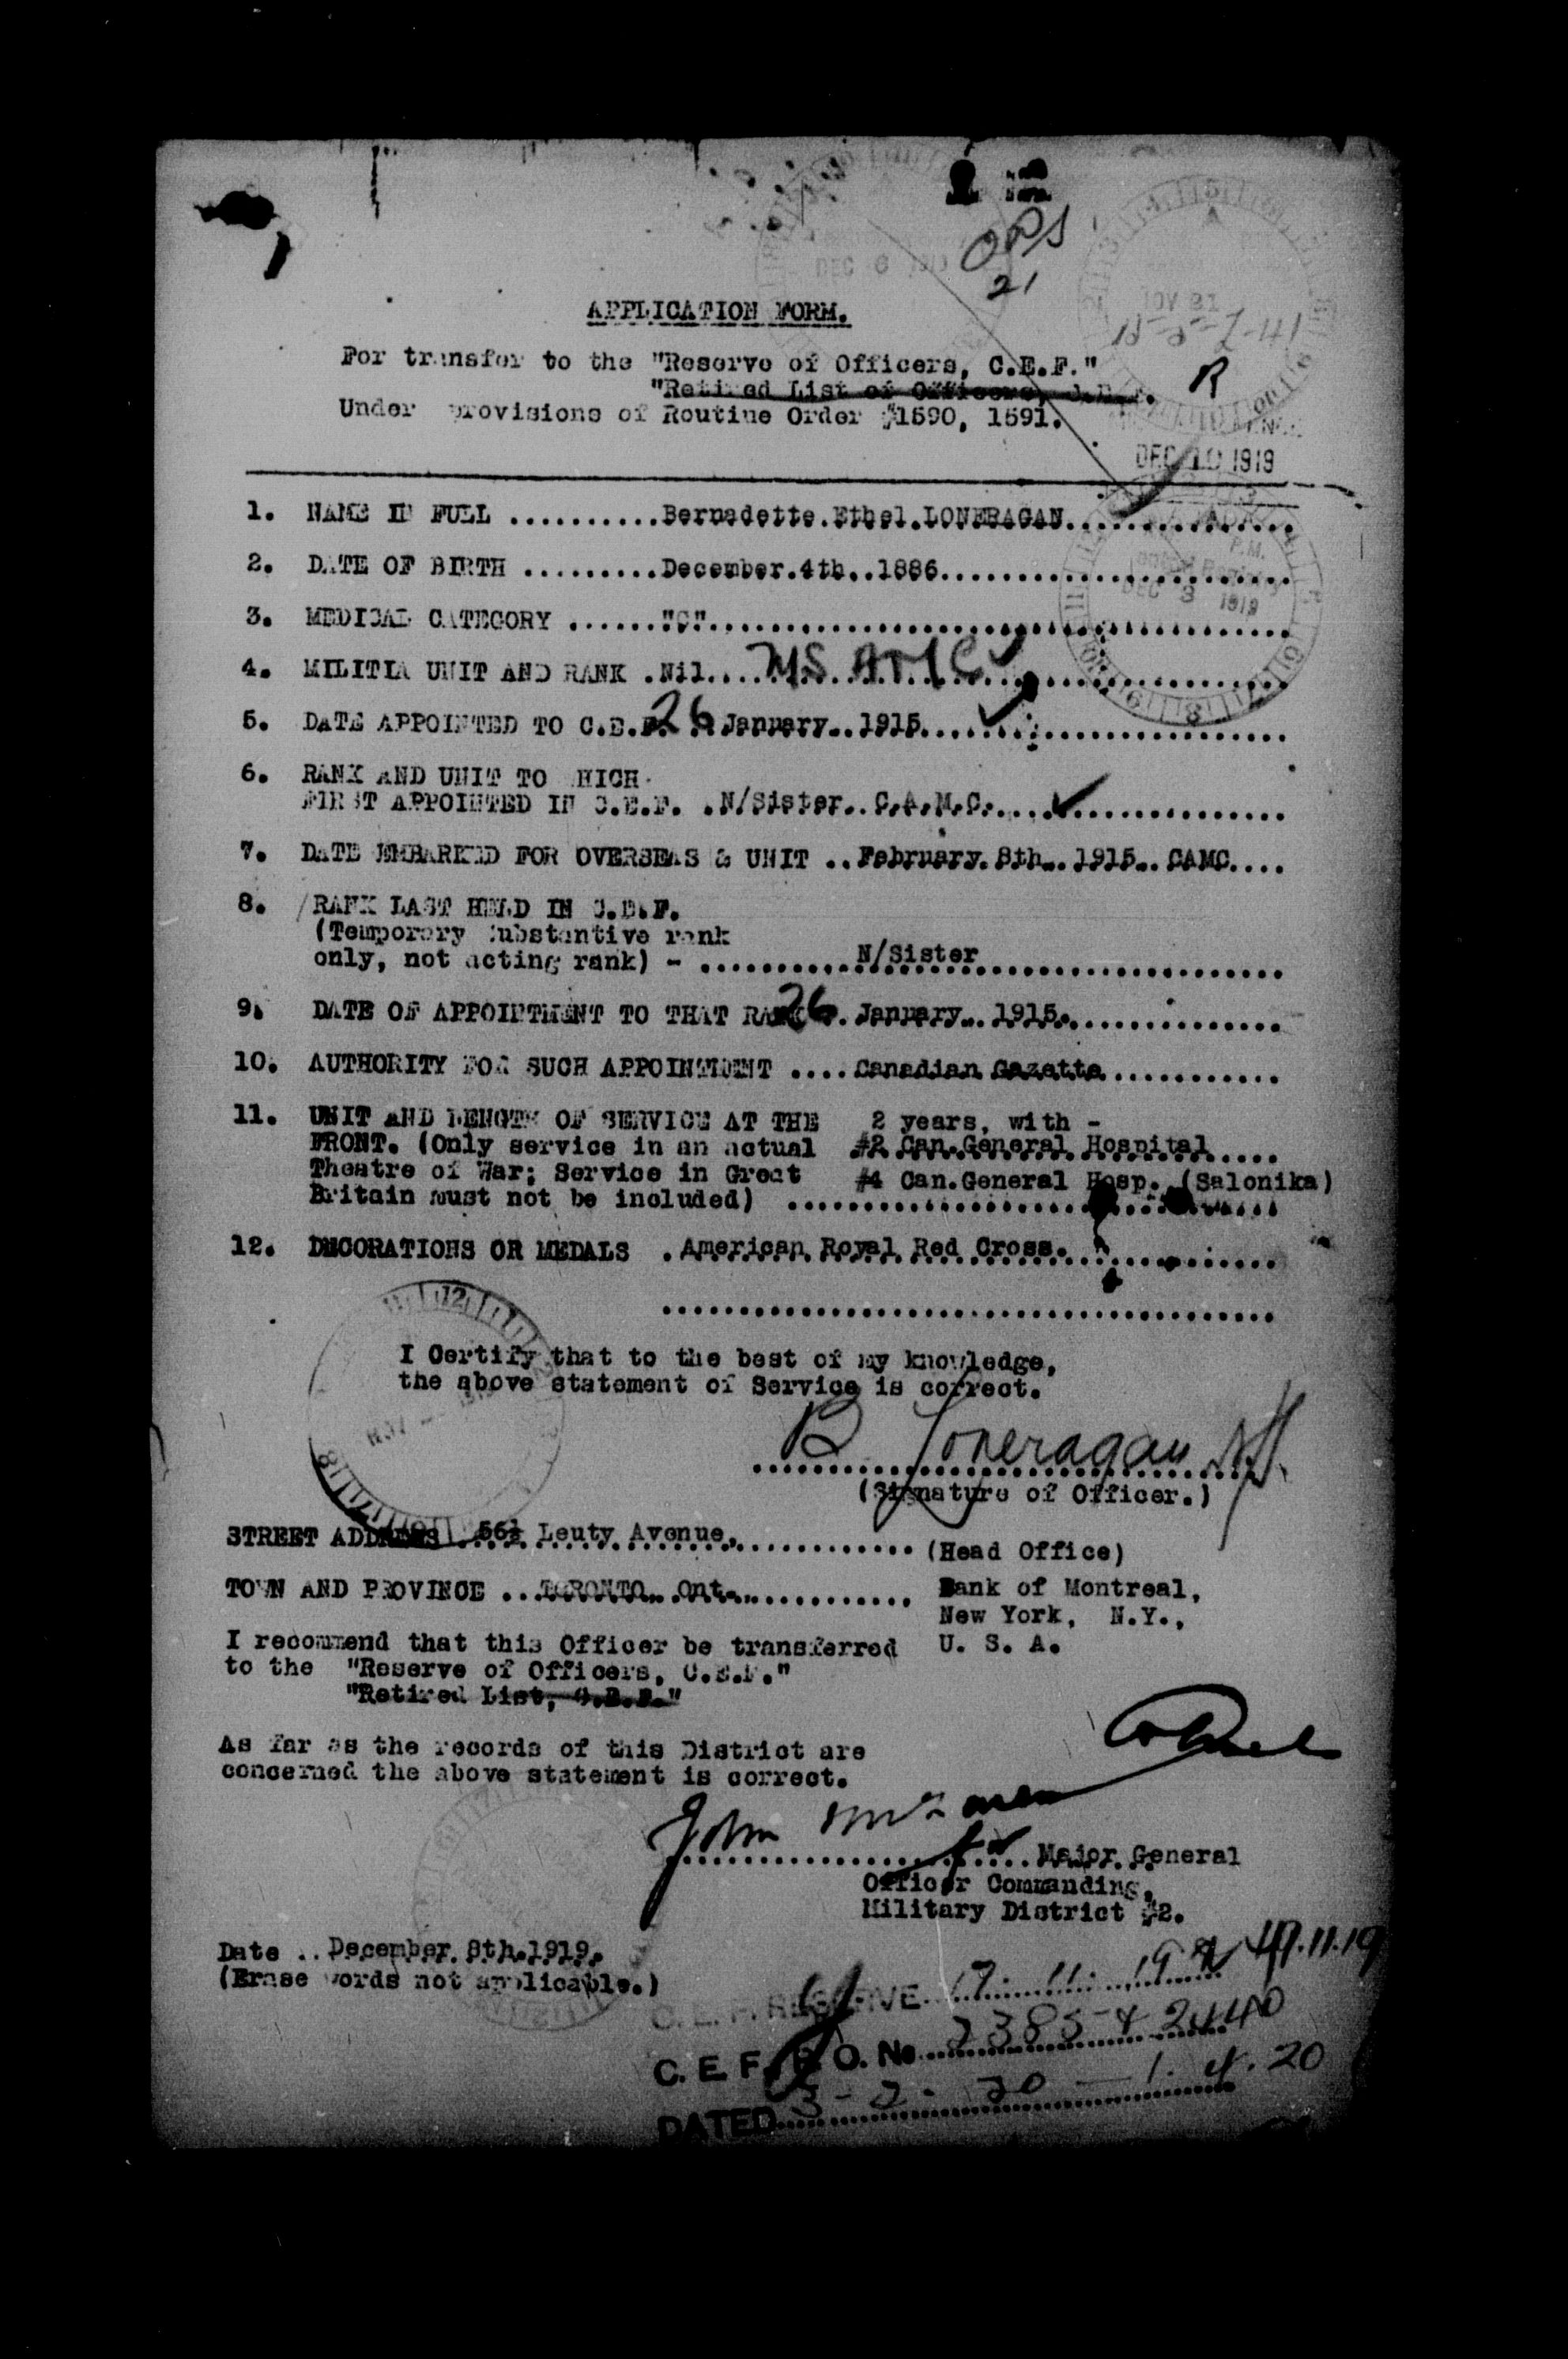 DEC 6
21
NOV 21
APPLICATION FORM.
For transfer to the "Reserve of Officers, C.E.F."
"Retired List of Officers, C.E.F.
R
Under provisions of Routine Order #1590, 1591.
DEC 10 1919
1. NAME IN FULL ..........Bernadette.Ethel.LONERAGAN...............
2. DATE OF BIRTH .........December.4th..1886.......................
P.M.
DEC 3 1919
3. MEDICAL CATEGORY ......"C"......................................
4. MILITIA UNIT AND RANK .Nil......................................
5. DATE APPOINTED TO C.E.F. 26 January..1915.......................
6. RANK AND UNIT TO WHICH
FIRST APPOINTED IN C.E.F. .N/Sister..C.A.M.C....................
7. DATE EMBARKED FOR OVERSEAS & UNIT ..February.8th..1915..CAMC....
8. /RANK LAST HELD IN C.E.F.
(Temporary Substantive rank
only, not acting rank) - ..........N/Sister....................
9. DATE OF APPOINTMENT TO THAT RANK 26. January..1915...............
10. AUTHORITY FOR SUCH APPOINTMENT ....Canadian Gazette............
11. UNIT AND LENGTH OF SERVICE AT THE 2 years, with -
FRONT. (Only service in an actual #2 Can.General Hospital.....
Theatre of War; Service in Great #4 Can.General Hosp. (Salonika)
Britain must not be included) ................................
12. DECORATIONS OR MEDALS .American Royal Red Cross...............
........................................
I Certify that to the best of my knowledge,
the above statement of Service is correct.
B Loneragan N/S.
(Signature of Officer.)
STREET ADDRESS ..56½ Leuty Avenue,............ (Head Office)
TOWN AND PROVINCE ...TORONTO..Ont............. Bank of Montreal,
New York, N.Y.,
I recommend that this Officer be transferred U. S. A.
to the "Reserve of Officers, C.E.F."
"Retired List, C.E.F."
As far as the records of this District are
concerned the above statement is correct.
Colonel
John
for Major General
Officer Commanding,
Military District #2.
Date ..December.8th.1919.
(Erase words not applicable.)
C. E. F. RESERVE 17. 11. 19
C. E. F. R. O. No 2385 & 2440
DATED 3-2-20 - 1. 4. 20